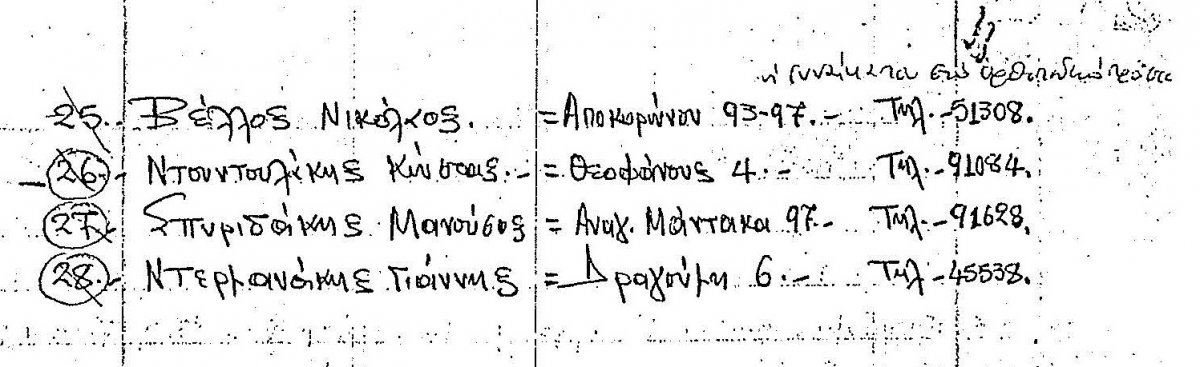 η γυναίκα του στο
25.- Βέλλος Νικόλαος. = Αποκορώνου 93-97.- Τηλ.-51308.
26.- Ντουντουλάκης Κώστας.- = Θεοφάνους 4.- Τηλ.-91084.
27.- Σπυριδάκης Μανούσος = Αναγ. Μάντακα 97.- Τηλ.-91628.
28.- Ντερμανάκης Γιάννης = Δραγούμη 6.- Τηλ-45538.